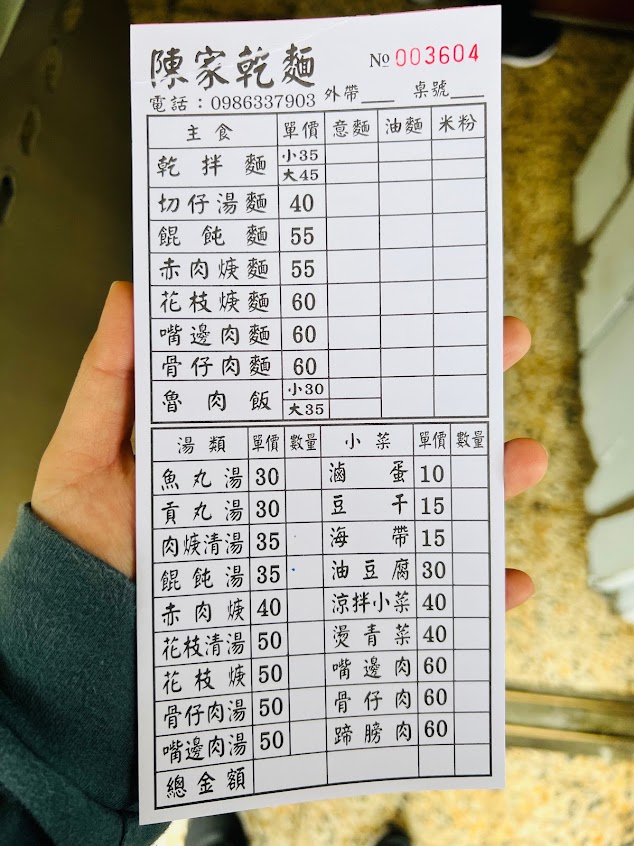 陳家乾麵 No 003604
電話：0986337903 外帶 桌號
主食 單價 意麵 油麵 米粉
乾拌麵 小35
大45
切仔湯麵 40
餛飩麵 55
赤肉焿麵 55
花枝焿麵 60
嘴邊肉麵 60
骨仔肉麵 60
魯肉飯 小30
大35
湯類 單價 數量 小菜 單價 數量
魚丸湯 30 滷蛋 10
貢丸湯 30 豆干 15
肉焿清湯 35 海帶 15
餛飩湯 35 油豆腐 30
赤肉焿 40 涼拌小菜 40
花枝清湯 50 燙青菜 40
花枝焿 50 嘴邊肉 60
骨仔肉湯 50 骨仔肉 60
嘴邊肉湯 50 蹄膀肉 60
總金額